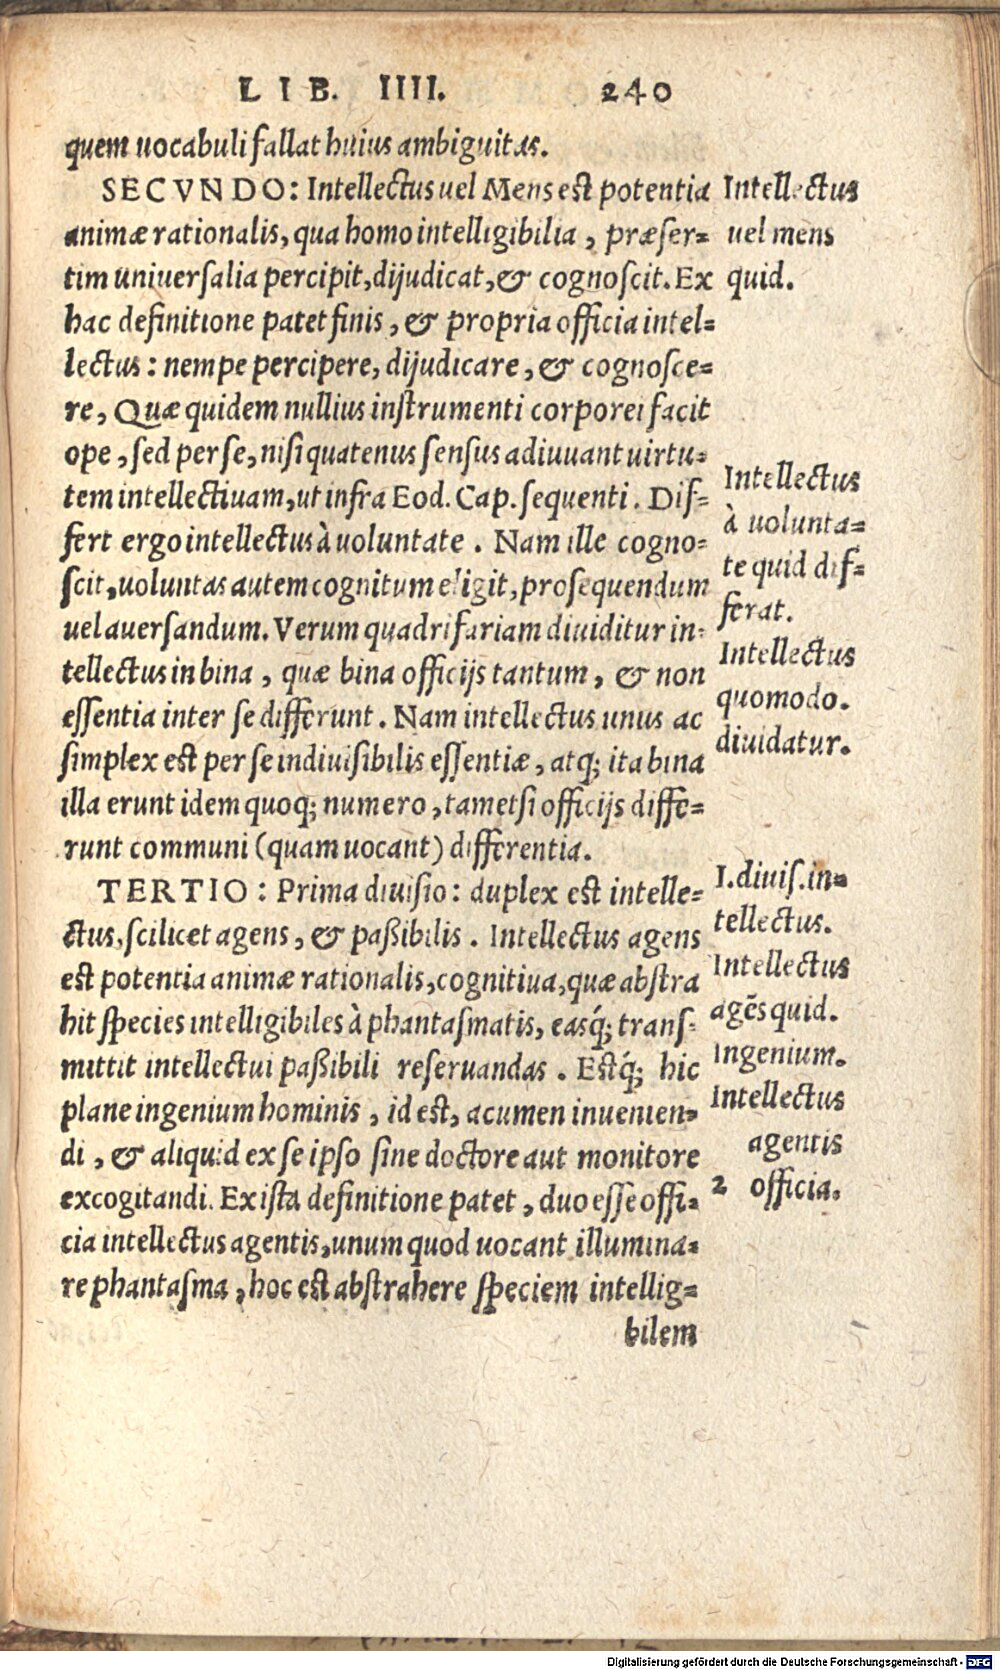 LIB. IIII. 240
quem uocabuli fallat huius ambiguitas.
SECVNDO: Intellectus uel Mens est potentia
animæ rationalis, qua homo intelligibilia, præser=
tim uniuersalia percipit, dijudicat, & cognoscit. Ex
hac definitione patet finis, & propria officia intel=
lectus: nempe percipere, dijudicare, & cognosce=
re, Quæ quidem nullius instrumenti corporei facit
ope, sed per se, nisi quatenus sensus adiuuant uirtu=
tem intellectiuam, ut infra Eod. Cap. sequenti. Dif=
fert ergo intellectus à uoluntate. Nam ille cogno=
scit, uoluntas autem cognitum eligit, prosequendum
uel auersandum. Verum quadrifariam diuiditur in=
tellectus in bina, quæ bina officijs tantum, & non
essentia inter se differunt. Nam intellectus unus ac
simplex est per se indiuisibilis essentiæ, atq; ita bina
illa erunt idem quoq; numero, tametsi officijs diffe=
runt communi (quam uocant) differentia.
TERTIO: Prima diuisio: duplex est intelle=
ctus, scilicet agens, & paßibilis. Intellectus agens
est potentia animæ rationalis, cognitiua, quæ abstra
hit species intelligibiles à phantasmatis, easq́; trans=
mittit intellectui paßibili reseruandas. Estq́; hic
plane ingenium hominis, id est, acumen inuenien=
di, & aliquid ex se ipso sine doctore aut monitore
excogitandi. Ex ista definitione patet, duo esse offi=
cia intellectus agentis, unum quod uocant illumina=
re phantasma, hoc est abstrahere speciem intellig=
bilem
Intellectus
uel mens
quid.
Intellectus
à uolunta=
te quid dif=
ferat.
Intellectus
quomodo.
diuidatur.
I. diuis. in=
tellectus.
Intellectus
agēs quid.
Ingenium.
Intellectus
agentis
2 officia.
Digitalisierung gefördert durch die Deutsche Forschungsgemeinschaft - DFG